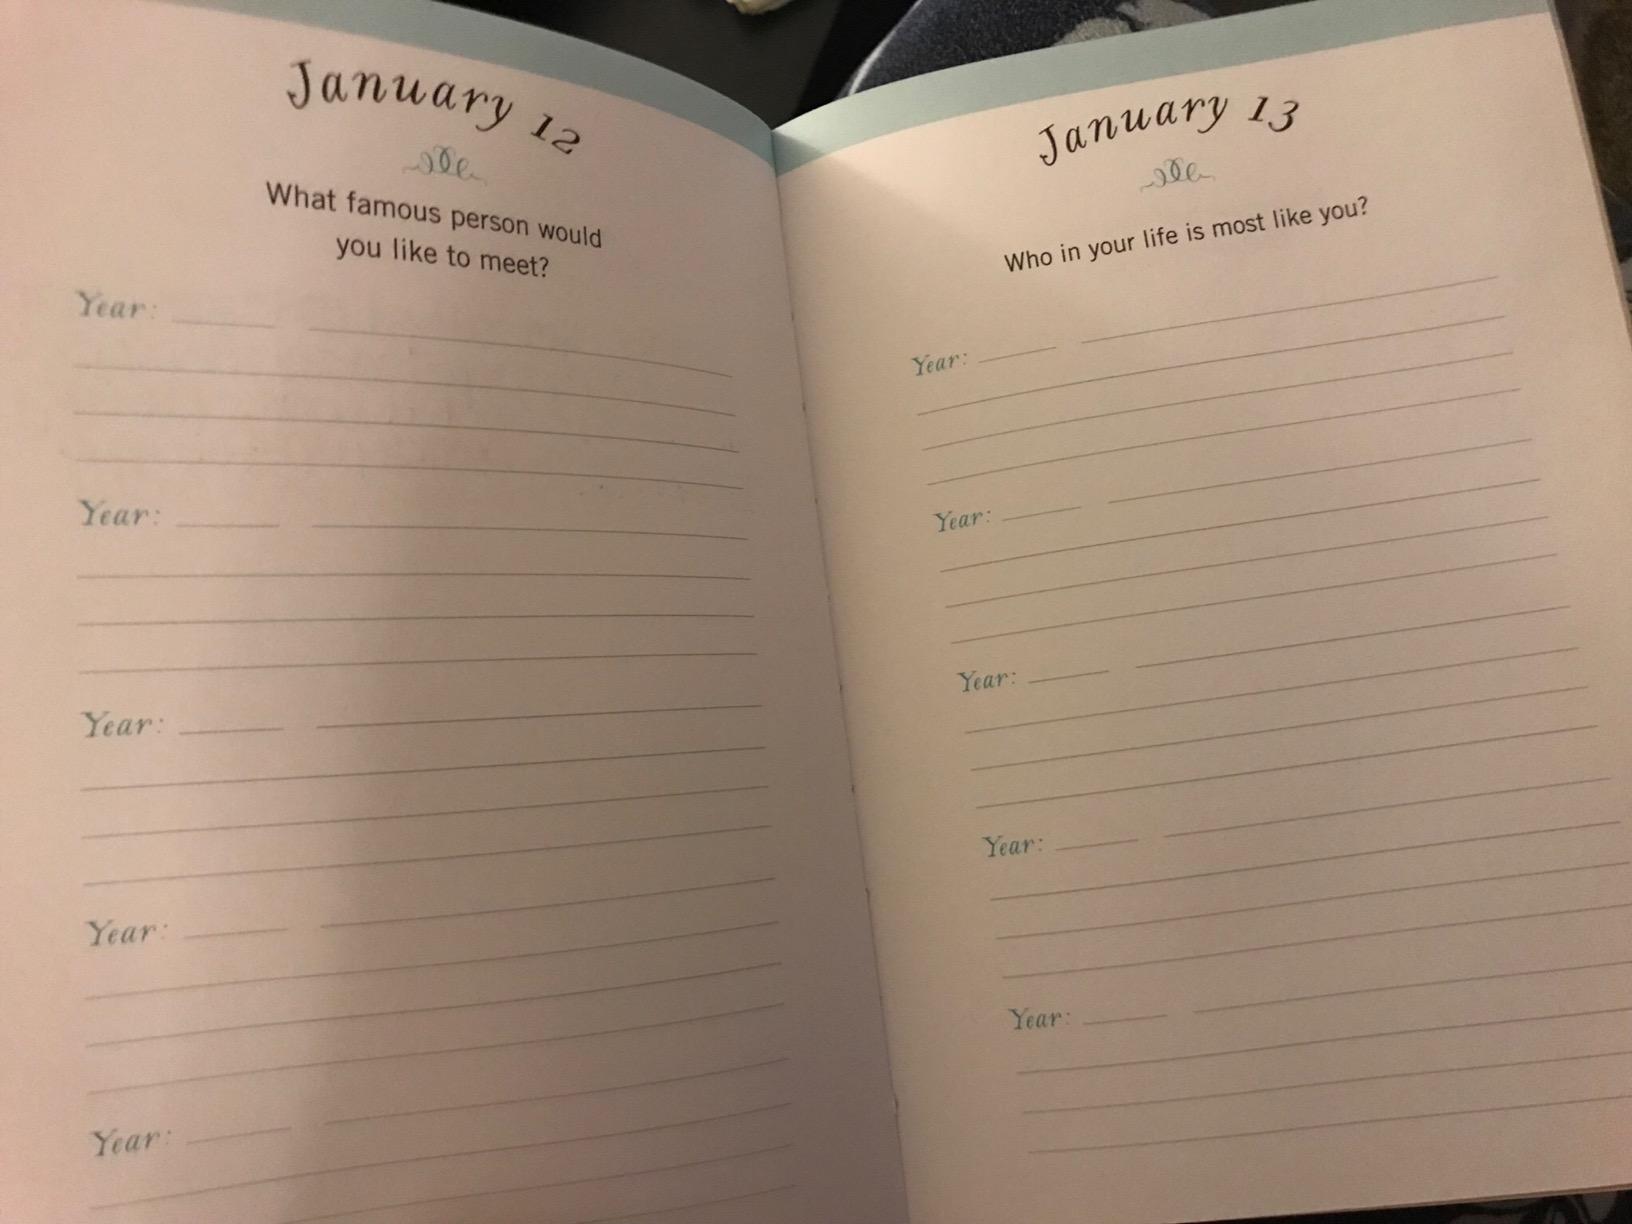 January 12
What famous person would
you like to meet?
Year:
Year:
Year:
Year:
Year:
January 13
Who in your life is most like you?
Year:
Year:
Year:
Year:
Year: